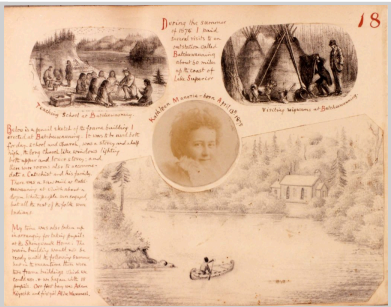 18
During the summer
of 1874 I paid
several visits to an
outstation called
Batchewanning
about 30 miles
up the coast of
Lake Superior
Teaching School at Batchewanning.
Visiting wigwams at Batchewanning.
Kathleen Mannie - born April 30 1875
Below is a pencil sketch of the frame building I
erected at Batchewanning. It was to be used both
for day school and church, was a story and a half
high, 18 long Church like windows lighting
both upper and lower story, and
two rooms also to accommo-
date a Catechist and his family.
There was a Saw mill at Batche-
wanning at which about a
dozen white people were employed
but all the rest of the folk were
Indians.
My time was also taken up
in arranging for taking pupils
at the Shingwauk Home. The
main building would not be
ready until the following Summer
but in the meantime there were
two frame buildings which we
could use, so we began with 16
pupils. Our first boy was Adam